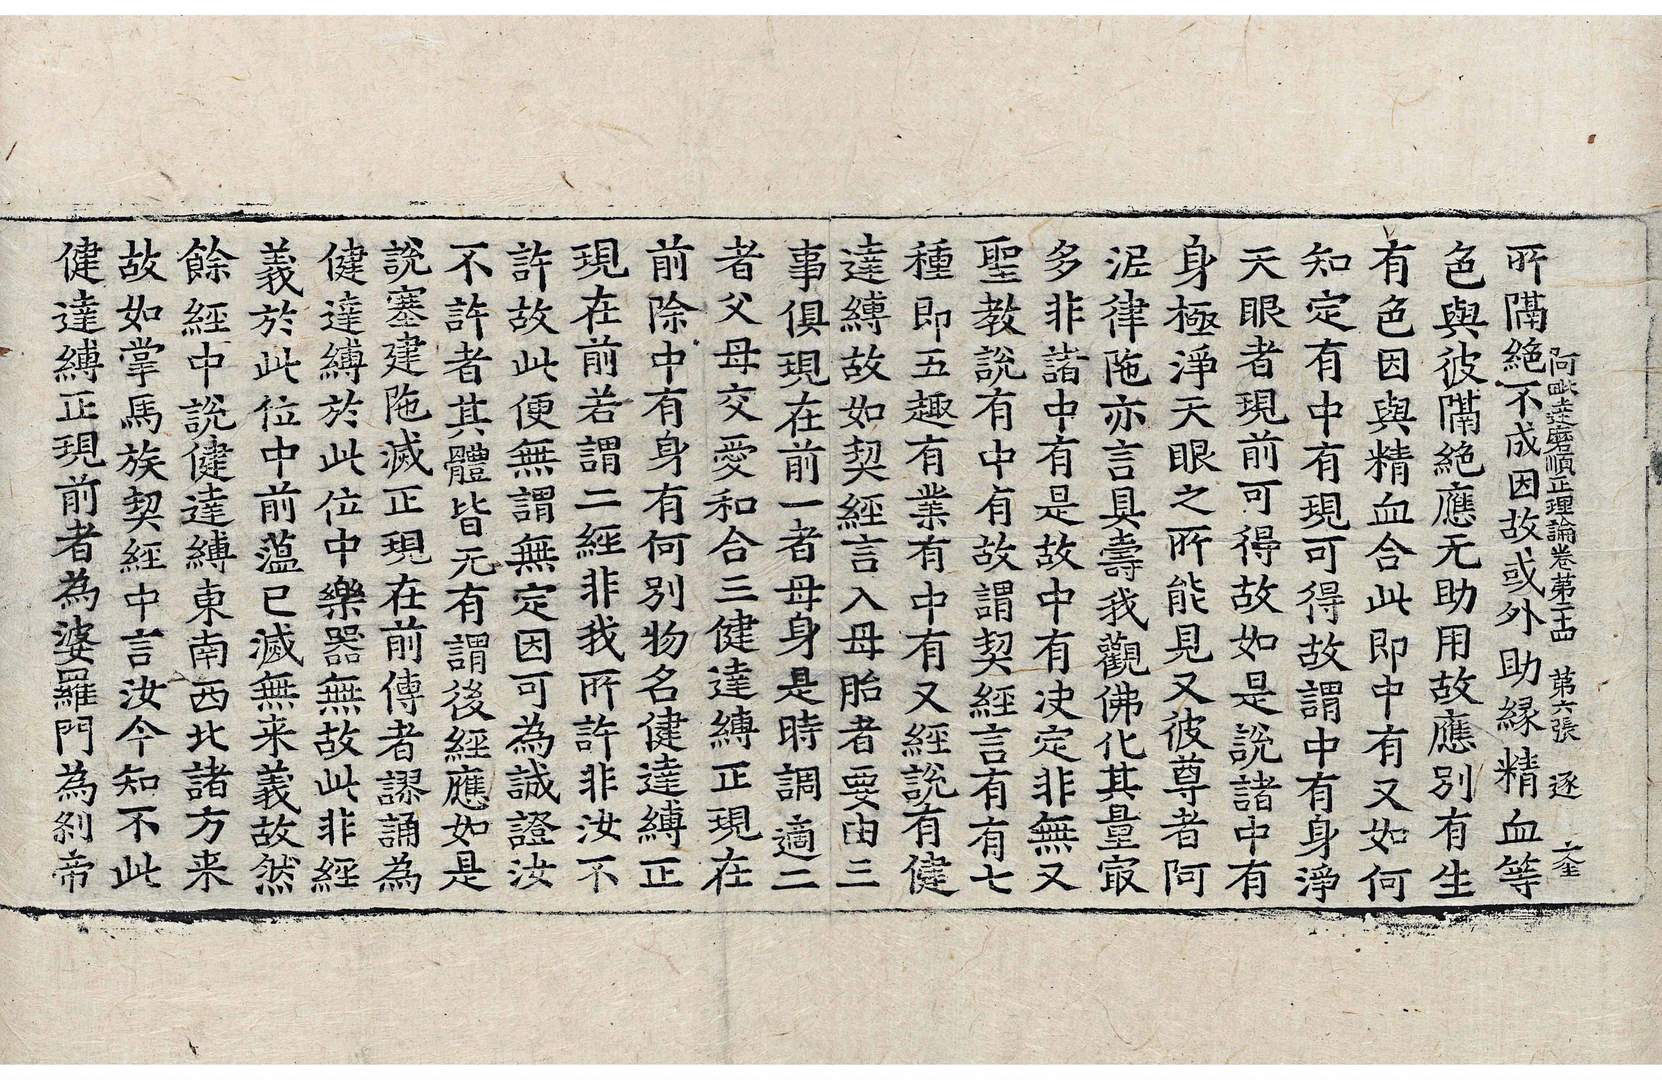 阿毗達磨順正理論卷第二十四 第六張 逐
所隔絶不成因故或外助縁精血等
色與彼隔絶應无助用故應別有生
有色因與精血合此即中有又如何
知定有中有現可得故謂中有身淨
天眼者現前可得故如是說諸中有
身極淨天眼之所能見又彼尊者阿
泥律陁亦言具壽我觀佛化其量㝡
多非諸中有是故中有决定非無又
聖教說有中有故謂契經言有有七
種即五趣有業有中有又經說有健
達縛故如契經言入母胎者要由三
事俱現在前一者母身是時調適二
者父母交愛和合三健達縛正現在
前除中有身有何別物名健達縛正
現在前若謂二經非我所許非汝不
許故此便無謂無定因可為誠證汝
不許者其體皆无有謂後經應如是
說塞建陁滅正現在前傳者謬誦為
健達縛於此位中樂器無故此非經
義於此位中前蕰已滅無来義故然
餘經中說健達縛東南西北諸方来
故如掌馬族契經中言汝今知不此
健達縛正現前者為婆羅門為刹帝